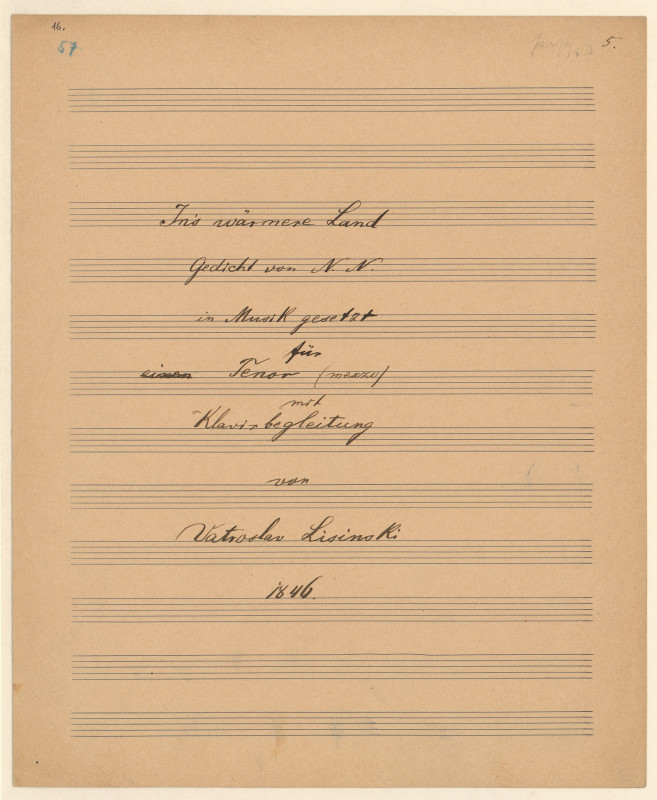 16.
57
5.
In's wärmere Land
Gedicht von N. N.
in Musik gesetzt
für
einen Tenor (mezzo)
mit
Klavirbegleitung
von
Vatroslav Lisinski
1846.